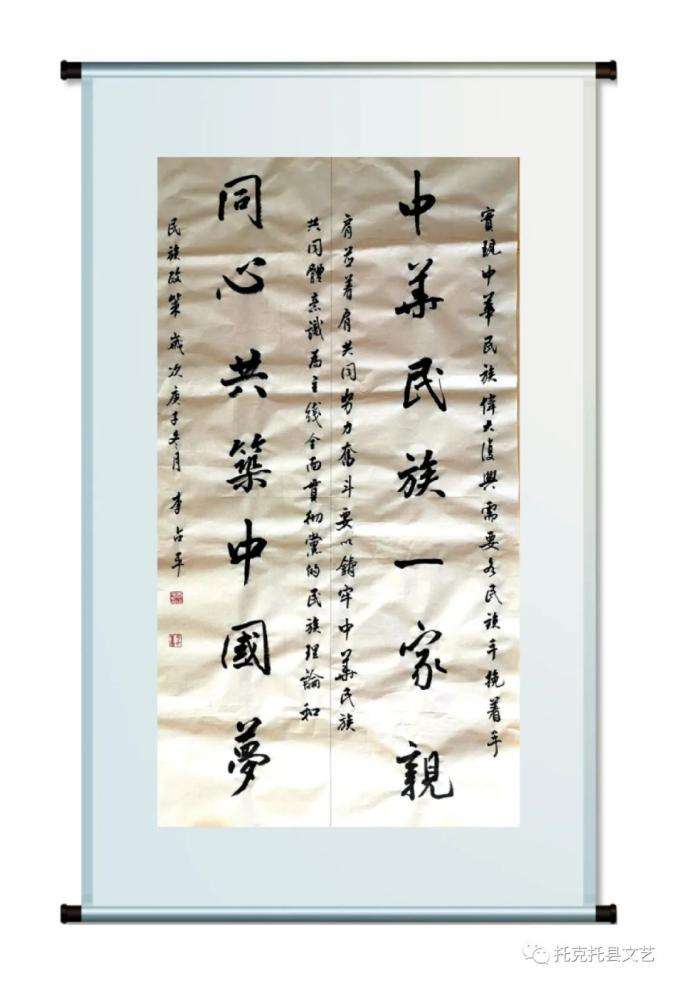 實現中華民族偉大復興需要各民族手挽着手
中華民族一家親
肩并着肩共同努力奮斗要以鑄牢中華民族
共同體意識為主綫全面貫彻黨的民族理論和
同心共築中國夢
民族政策 歲次庚子冬月 李占平
托克托县文艺